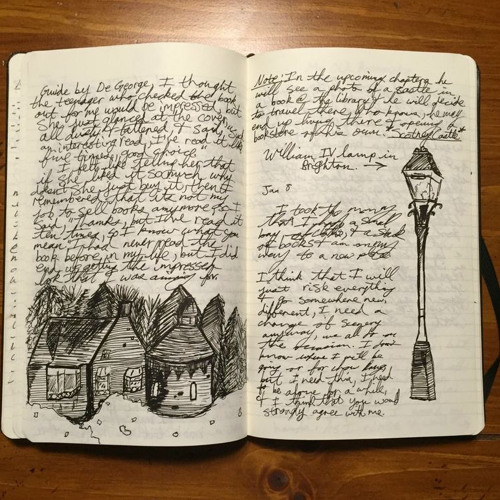 Guide by De George, I thought
the teenager who checked the book
out for me would be impressed, but
She just glanced at the cover, it was
all dusty & tattered, & said,
an interesting read, I've read it like
five times, good choice."
I felt like telling her that
if she liked it so much why
doesn't she just buy it, then I
remembered that it's not my
job to sell books anymore so I
said, thanks, but I've read it
ten times, so I know what you
mean. I had never read the
book before in my life, but I did
end up getting the impressed
look that I was aiming for.
Note: In the upcoming chapters he
will see a photo of a castle in
a book @ the library & he will decide
to travel there, & who knows, he will
end up living there & opening a
bookstore of his own. "Scotney Castle"
William IV lamp in
Brighton. →
Jan 8
I took the money
that I
bag
of books & am on my
way to a new place
I think that I will
just risk everything
& go somewhere new,
different, I need a
change of scenery
anyway, we all
the
know where I will be
or for how long,
but I need this, I need
to be alone for a while,
& I think that you would
strongly agree with me.